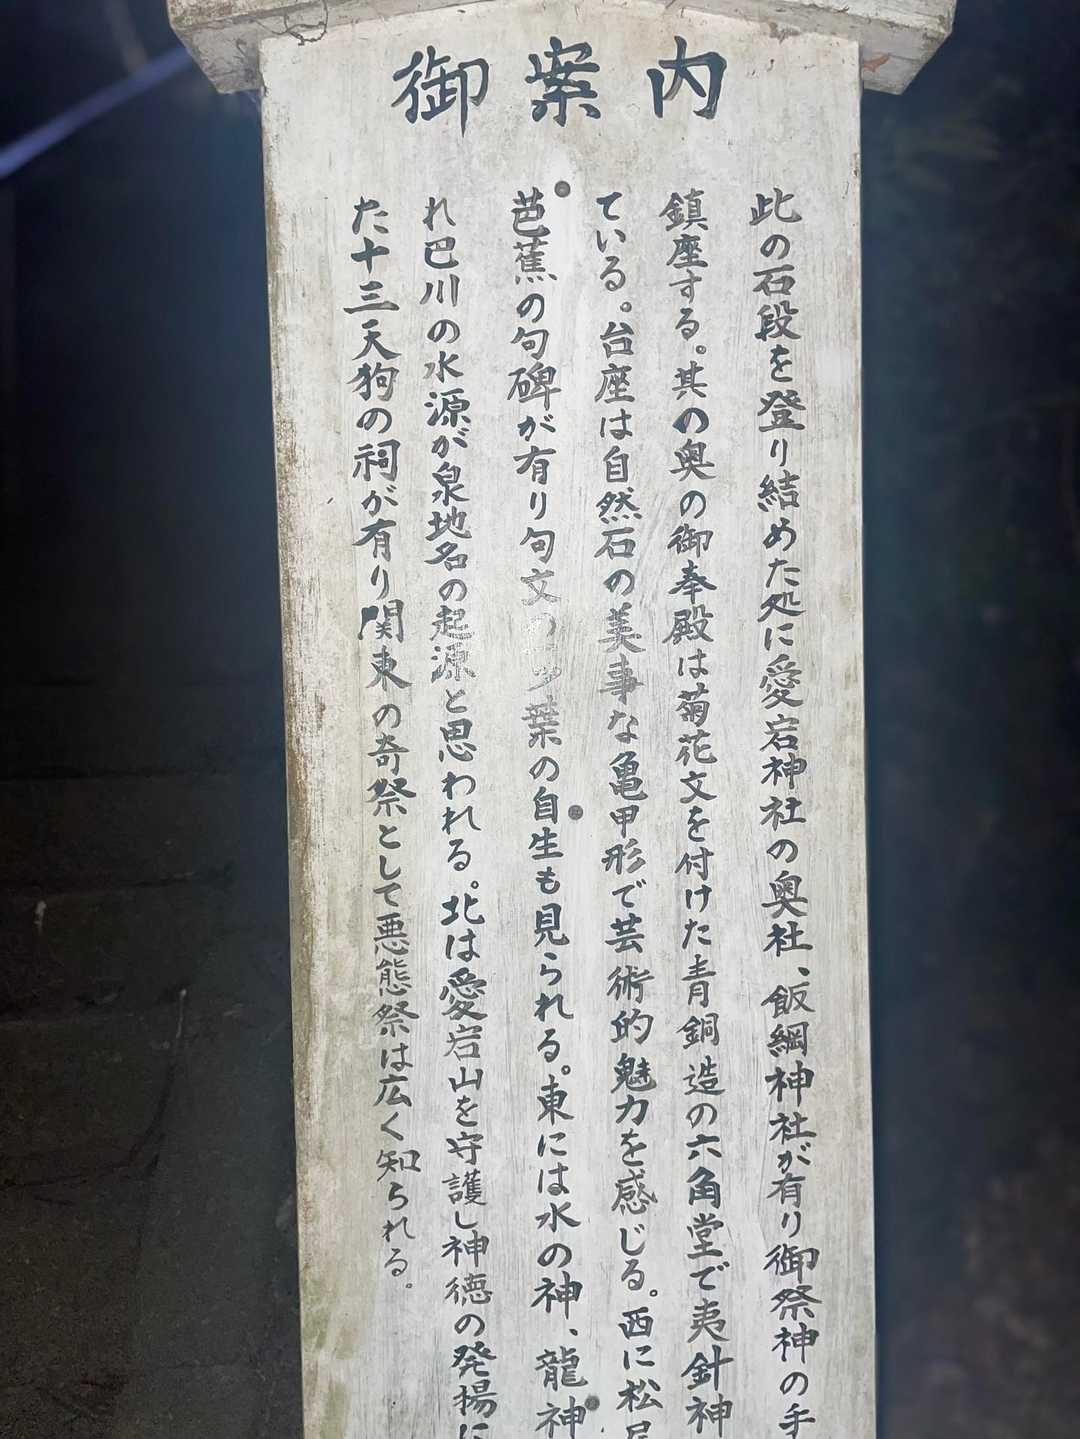 御案内
此の石段を登り結めた処に愛宕神社の奥社、飯綱神社が有り御祭神の手
鎮座する。其の奥の御奉殿は菊花文を付けた青銅造の六角堂で夷針神
ている。台座は自然石の美事な亀甲形で芸術的魅力を感じる。西に松尾
芭蕉の句碑が有り句文の三ツ葉の自生も見られる。東には水の神、龍神
れ巴川の水源が泉地名の起源と思われる。北は愛宕山を守護し神徳の発揚に
た十三天狗の祠が有り関東の奇祭として悪態祭は広く知られる。